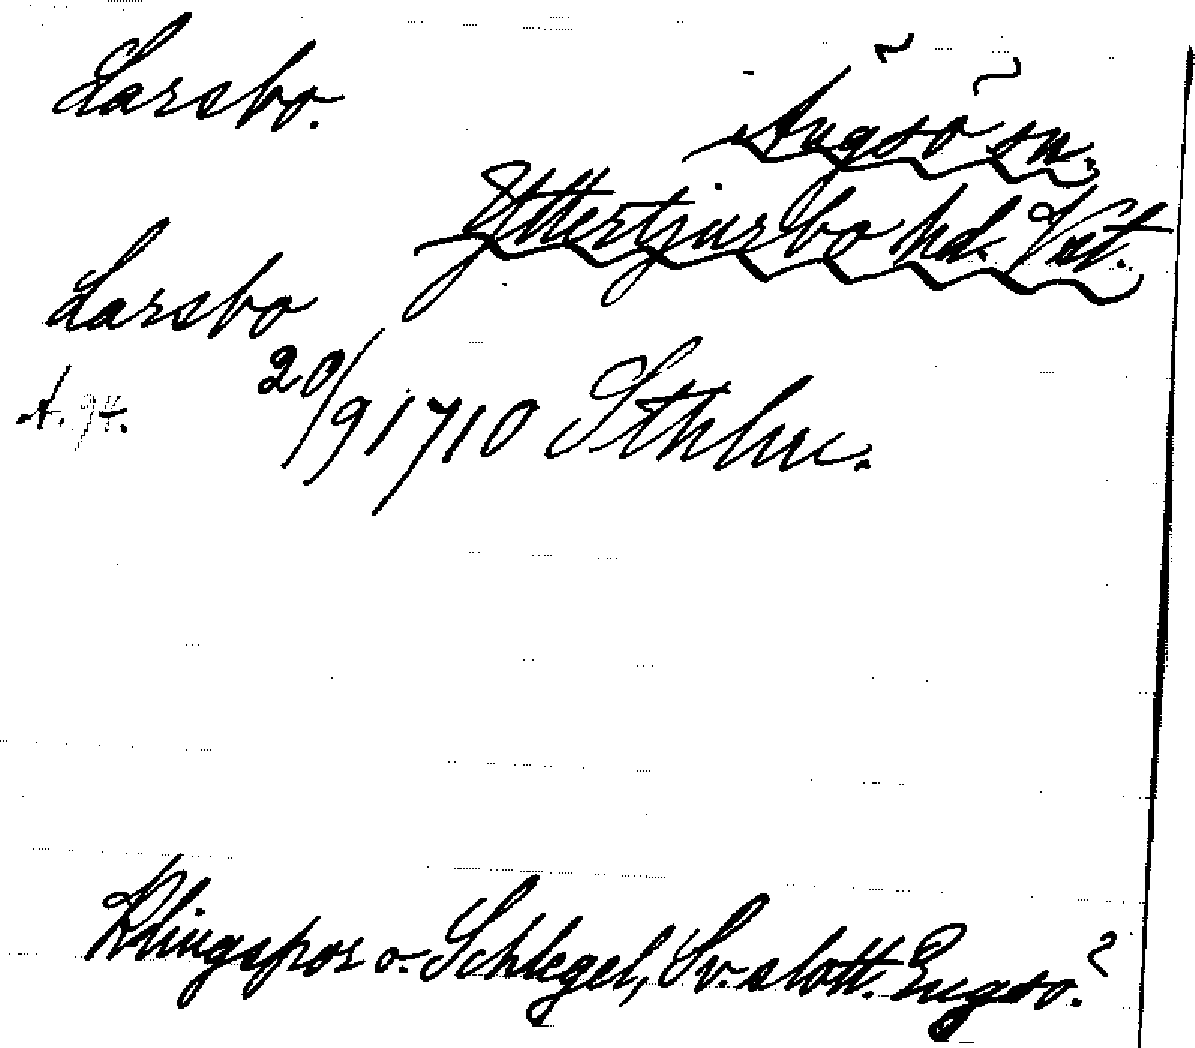 Larsbo.
Ängsö sn.
Yttertjurbo hd. Vst.
Larsbo
20/9 1710 Sthlm.
A. 94.
Klingspor o. Schlegel, Sv. slott. Engsö.